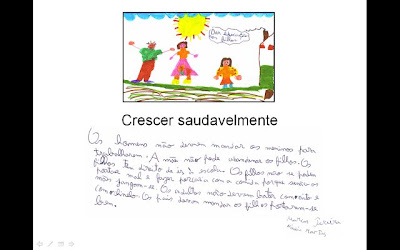 Dar educação aos filhos
Crescer saudavelmente
Os homens não devem mandar os meninos para
trabalharem. A mãe não pode abandonar os filhos. Os
filhos têm direito de ir à escola. Os filhos não se podem
portar mal e fazer porcaria com a comida porque senão as
mães zangam-se. Os adultos não devem bater com cinto e
Os pais devem mandar os filhos portarem-se
bem.